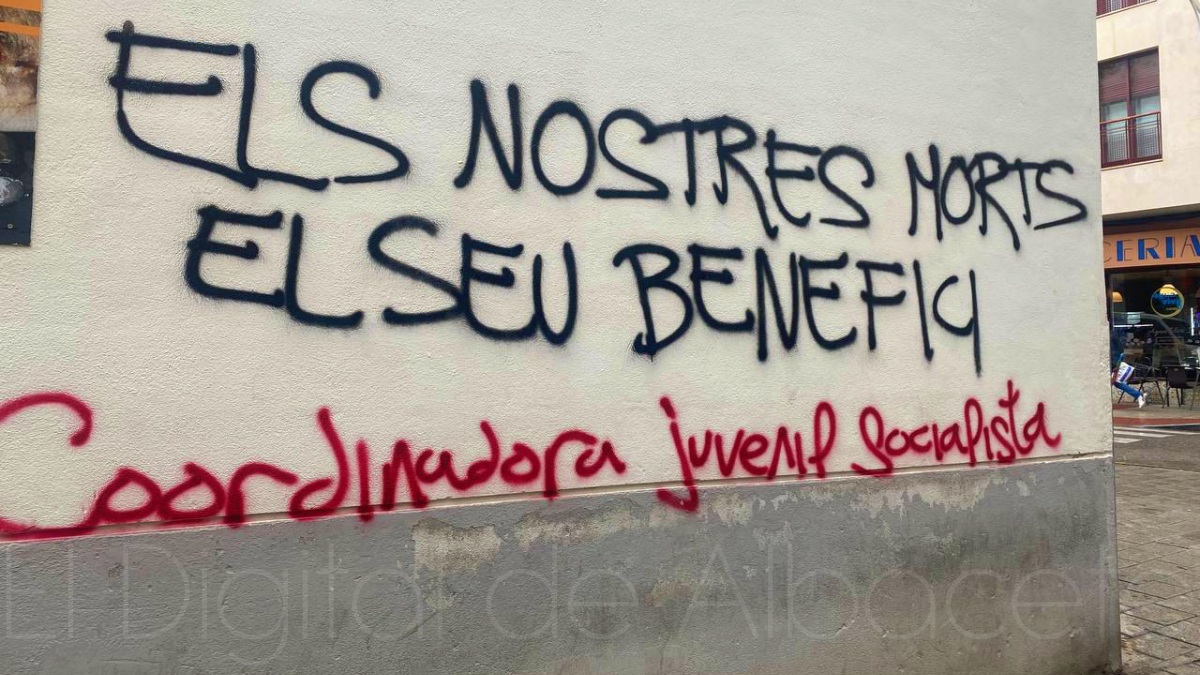 ELS NOSTRES MORTS
EL SEU BENEFICI
Coordinadora juvenil socialista
CERIA
El Digital de Albacete